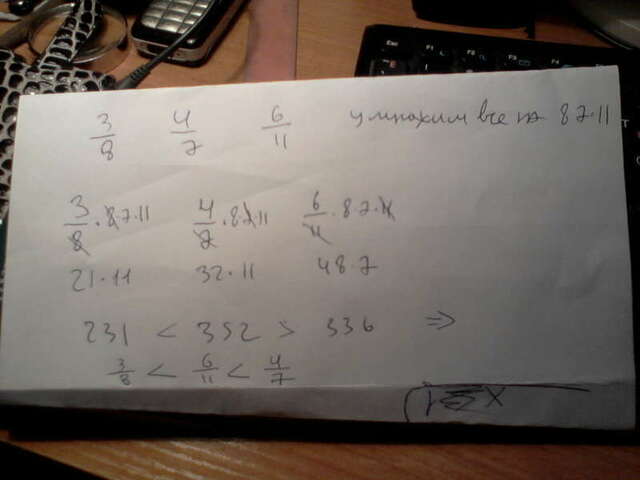 3/8 4/7 6/11 умножим все на 8 7·11
3/8 · 8 7·11 4/7 · 8·7 11 6/11 · 8 7·11
21·11 32·11 48·7
231 < 352 > 336 ⇒
3/8 < 6/11 < 4/7